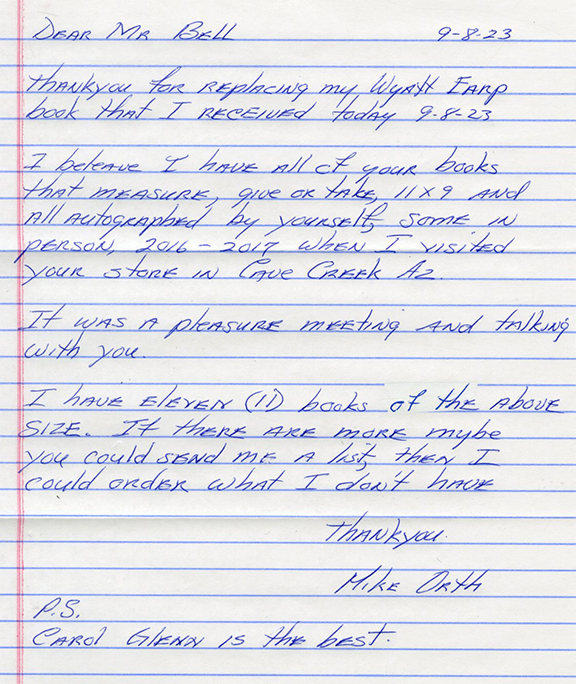 Dear Mr Bell 9-8-23
thankyou for replacing my Wyatt Earp
book that I received today 9-8-23
I beleave I have all of your books
that measure, give or take, 11x9 and
all autographed by yourself, some in
person, 2016 - 2017 when I visited
your store in Cave Creek Az.
It was a pleasure meeting and talking
with you.
I have eleven (11) books of the above
size. If there are more mybe
you could send me a list, then I
could order what I don't have
thankyou.
Mike Orth
P.S.
Carol Glenn is the best.